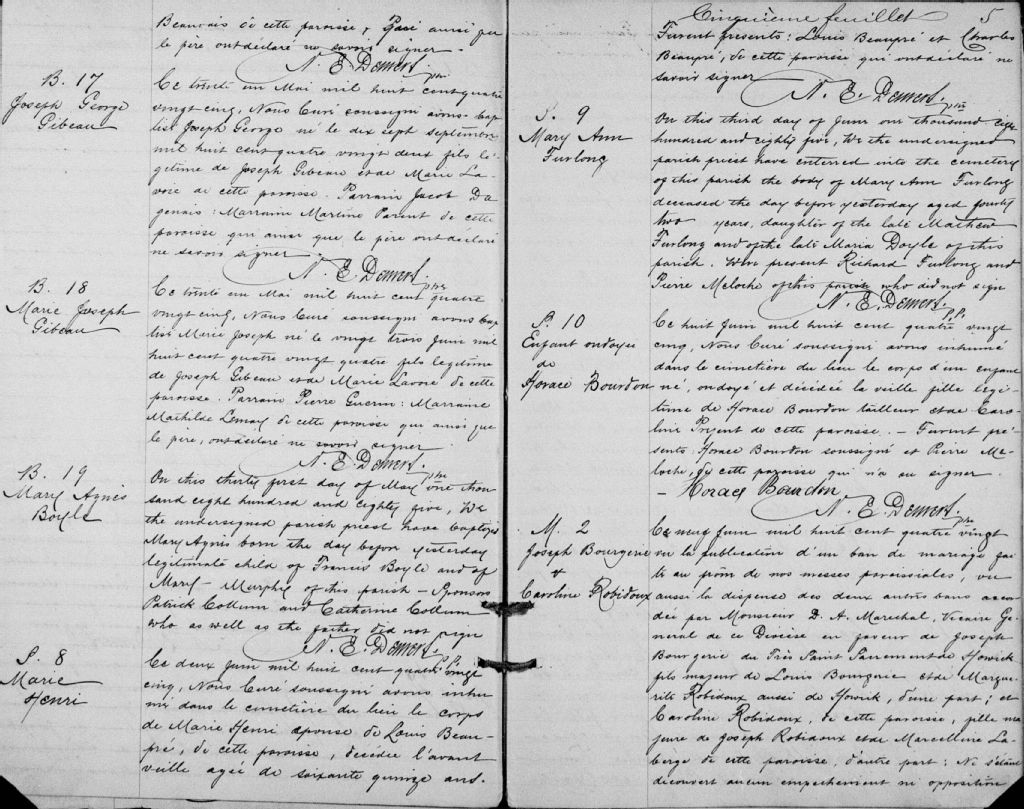 Beauvais de cette paroisse, qui ainsi que
le père ont déclaré ne savoir signer.
N. E. Demers. ptre
B. 17
Joseph George
Gibeau
Ce trente un Mai mil huit cent quatre
vingt cinq, Nous Curé soussigné avons bap-
tisé Joseph George né le dix sept septembre
mil huit cent quatre vingt deux fils lé-
gitime de Joseph Gibeau et de Marie La-
voie de cette paroisse. Parrain Jacob Da
genais: Marraine Martine Parent de cette
paroisse qui ainsi que le père ont déclaré
ne savoir signer
N. E. Demers. ptre
B. 18
Marie Joseph
Gibeau
Ce trente un Mai mil huit cent quatre
vingt cinq, Nous Curé soussigné avons bap
tisé Marie Joseph né le vingt trois Juin mil
huit cent quatre vingt quatre fils legitime
de Joseph Gibeau et de Marie Lavoie de cette
paroisse. Parrain Pierre Guerin: Marraine
Mathilde Lemay de cette paroisse qui ainsi que
le père, ont déclaré ne savoir signer
N. E. Demers. ptre
B. 19
Mary Agnès
Boyle
On this thirty first day of May one thou
sand eight hundred and eighty five, We
the undersigned parish priest have baptized
Mary Agnès born the day before yesterday
legitimate child of Francis Boyle and of
Mary Murphy of this parish - Sponsors
Patrick Collum and Catherine Collum
who as well as the father did not sign
N. E. Demers. P.P.
S. 8
Marie
Henri
Ce deux Juin mil huit cent quatre vingt
cinq, Nous Curé soussigné avons inhu
mé dans le cimetière du lieu le corps
de Marie Henri épouse de Louis Beau-
pré, de cette paroisse, décédée l'avant
veille agée de soixante quinze ans.
Cinquième feuillet 5
Furent presents: Louis Beaupré et Charles
Beaupré, de cette paroisse qui ont déclaré ne
savoir signer
N. E. Demers. ptre
S. 9
Mary Ann
Furlong
On this third day of June one thousand eight
hundred and eighty five, We the undersigned
parish priest have enterred into the cemetery
of this parish the body of Mary Ann Furlong
deseased the day before yesterday aged fourty
two years, daughter of the late Mathew
Furlong and of the late Maria Doyle of this
parish. Were present Richard Furlong and
Pierre Meloche of this parish who did not sign
N. E. Demers. P.P.
S. 10
Enfant ondoyée
de
Horace Bourdon
Ce huit Juin mil huit cent quatre vingt
cinq, Nous Curé soussigné avons inhumé
dans le cimetière du lieu le corps d'un enfant
né, ondoyé et décédée la veille fille legi-
time de Horace Bourdon tailleur et de Caro-
line Prejent de cette paroisse. - Furent pré-
sents Horace Bourdon soussigné et Pierre Me-
loche, de cette paroisse qui n'a su signer.
- Horace Bourdon
N. E. Demers. ptre
M. 2
Joseph Bourgerie
&
Caroline Robidoux
Ce neuf Juin mil huit cent quatre vingt
vu la publication d'un ban de mariage fai
te au prône de nos messes paroissiales, vu
aussi la dispense des deux autres bans accor
dée par Monsieur D. A. Marechal, Vicaire Gé
neral de ce Diocèse en faveur de Joseph
Bourgerie du Très Saint Sacrement de Howick
fils majeur de Louis Bourgerie et de Margue
rite Robidoux aussi de Howick, d'une part; et
Caroline Robidoux, de cette paroisse, fille ma
jeure de Joseph Robidoux et de Marcelline La-
berge de cette paroisse, d'autre part: Ne s'étant
découvert aucun empêchement ni opposition